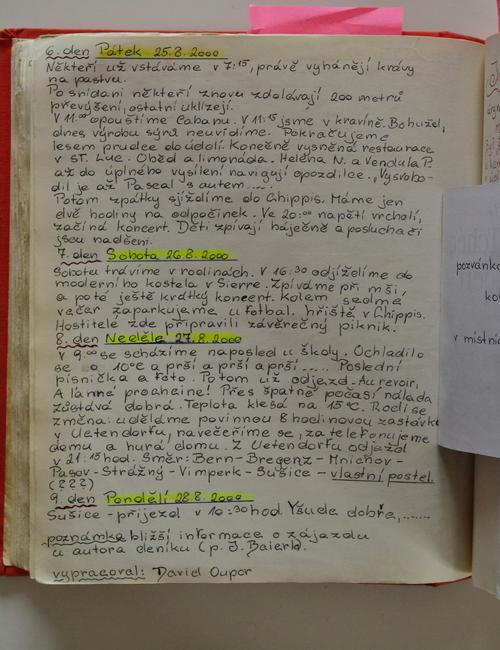 6. den Pátek 25.8.2000
Někteří už vstáváme v 7:15, právě vyhánějí krávy
na pastvu.
Po snídani někteří znovu zdolávají 200 metrů
převýšení, ostatní uklízejí.
V 11:00 opouštíme Cabanu. V 11:15 jsme v kravíně. Bohužel,
dnes výrobu sýrů neuvidíme. Pokračujeme
lesem prudce do údolí. Konečně vysněná restaurace
v ST. Luc. Oběd a limonáda. Helena N. a Vendula P.
až do úplného vysílení navigují opozdilce. „Vysvobo-
dil je až Pascal s autem.....
Potom zpátky sjíždíme do Chippis. Máme jen
dvě hodiny na odpočinek. Ve 20:00 napětí vrcholí,
začíná koncert. Děti zpívají báječně a posluchači
jsou nadšeni.
7. den Sobota 26.8.2000
Sobotu trávíme v rodinách. V 16:30 odjíždíme do
moderního kostela v Sierre. Zpíváme při mši,
a poté ještě krátký koncert. Kolem sedmé
večer zaparkujeme u fotbal. hřiště v Chippis.
Hostitelé zde připravili závěrečný piknik.
8. den Neděle 27.8.2000
V 9:00 se scházíme naposled u školy. Ochladilo
se o 10°C a prší a prší a prší ..... Poslední
písnička a foto. Potom už odjezd. Au revoir,
A l'anné prochaine! Přes špatné počasí nálada
zůstává dobrá. Teplota klesá na 15°C. Rodí se
změna: uděláme povinnou 8 hodinovou zastávku
v Uetendorfu, navečeříme se, zatelefonujeme
domu a hurá domu. Z Uetendorfu odjezd
v 21:15 hod. Směr: Bern - Bregenz - Mnichov -
Pasov - Strážný - Vimperk - Sušice - vlastní postel.
(???)
9. den Pondělí 28.8.2000
Sušice - příjezd v 10:30 hod. Všude dobře,......
poznámka bližší informace o zájezdu
u autora deníku (p. J. Baierl).
vypracoval: David Oupor
pozvánk
ko
v místní